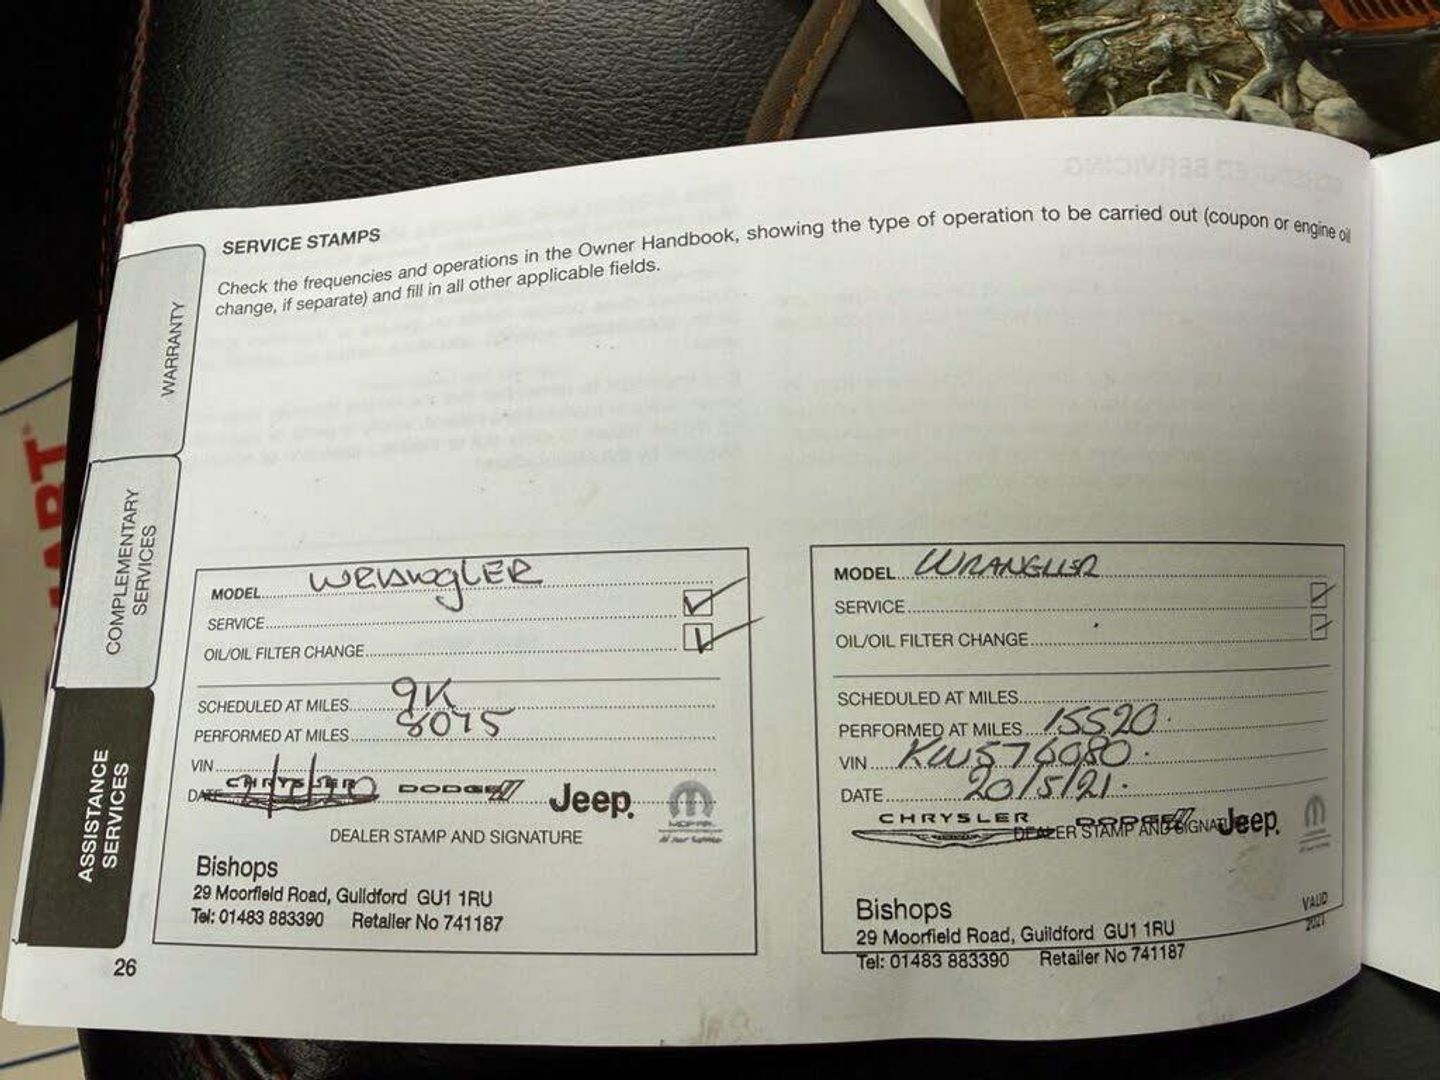 SERVICE STAMPS
Check the frequencies and operations in the Owner Handbook, showing the type of operation to be carried out (coupon or engine oil
change, if separate) and fill in all other applicable fields.
WARRANTY
COMPLEMENTARY
SERVICES
ASSISTANCE
SERVICES
MODEL WRANGLER
SERVICE
OIL/OIL FILTER CHANGE
SCHEDULED AT MILES 9K
PERFORMED AT MILES 8075
VIN
DATE
CHRYSLER DODGE Jeep. MOPAR
DEALER STAMP AND SIGNATURE
Bishops
29 Moorfield Road, Guildford GU1 1RU
Tel: 01483 883390 Retailer No 741187
MODEL WRANGLER
SERVICE
OIL/OIL FILTER CHANGE
SCHEDULED AT MILES
PERFORMED AT MILES 15520.
VIN KW576080.
DATE 20/5/21.
CHRYSLER DODGE Jeep.
DEALER STAMP AND SIGNATURE
Bishops
29 Moorfield Road, Guildford GU1 1RU
Tel: 01483 883390 Retailer No 741187
VALID
2021
26